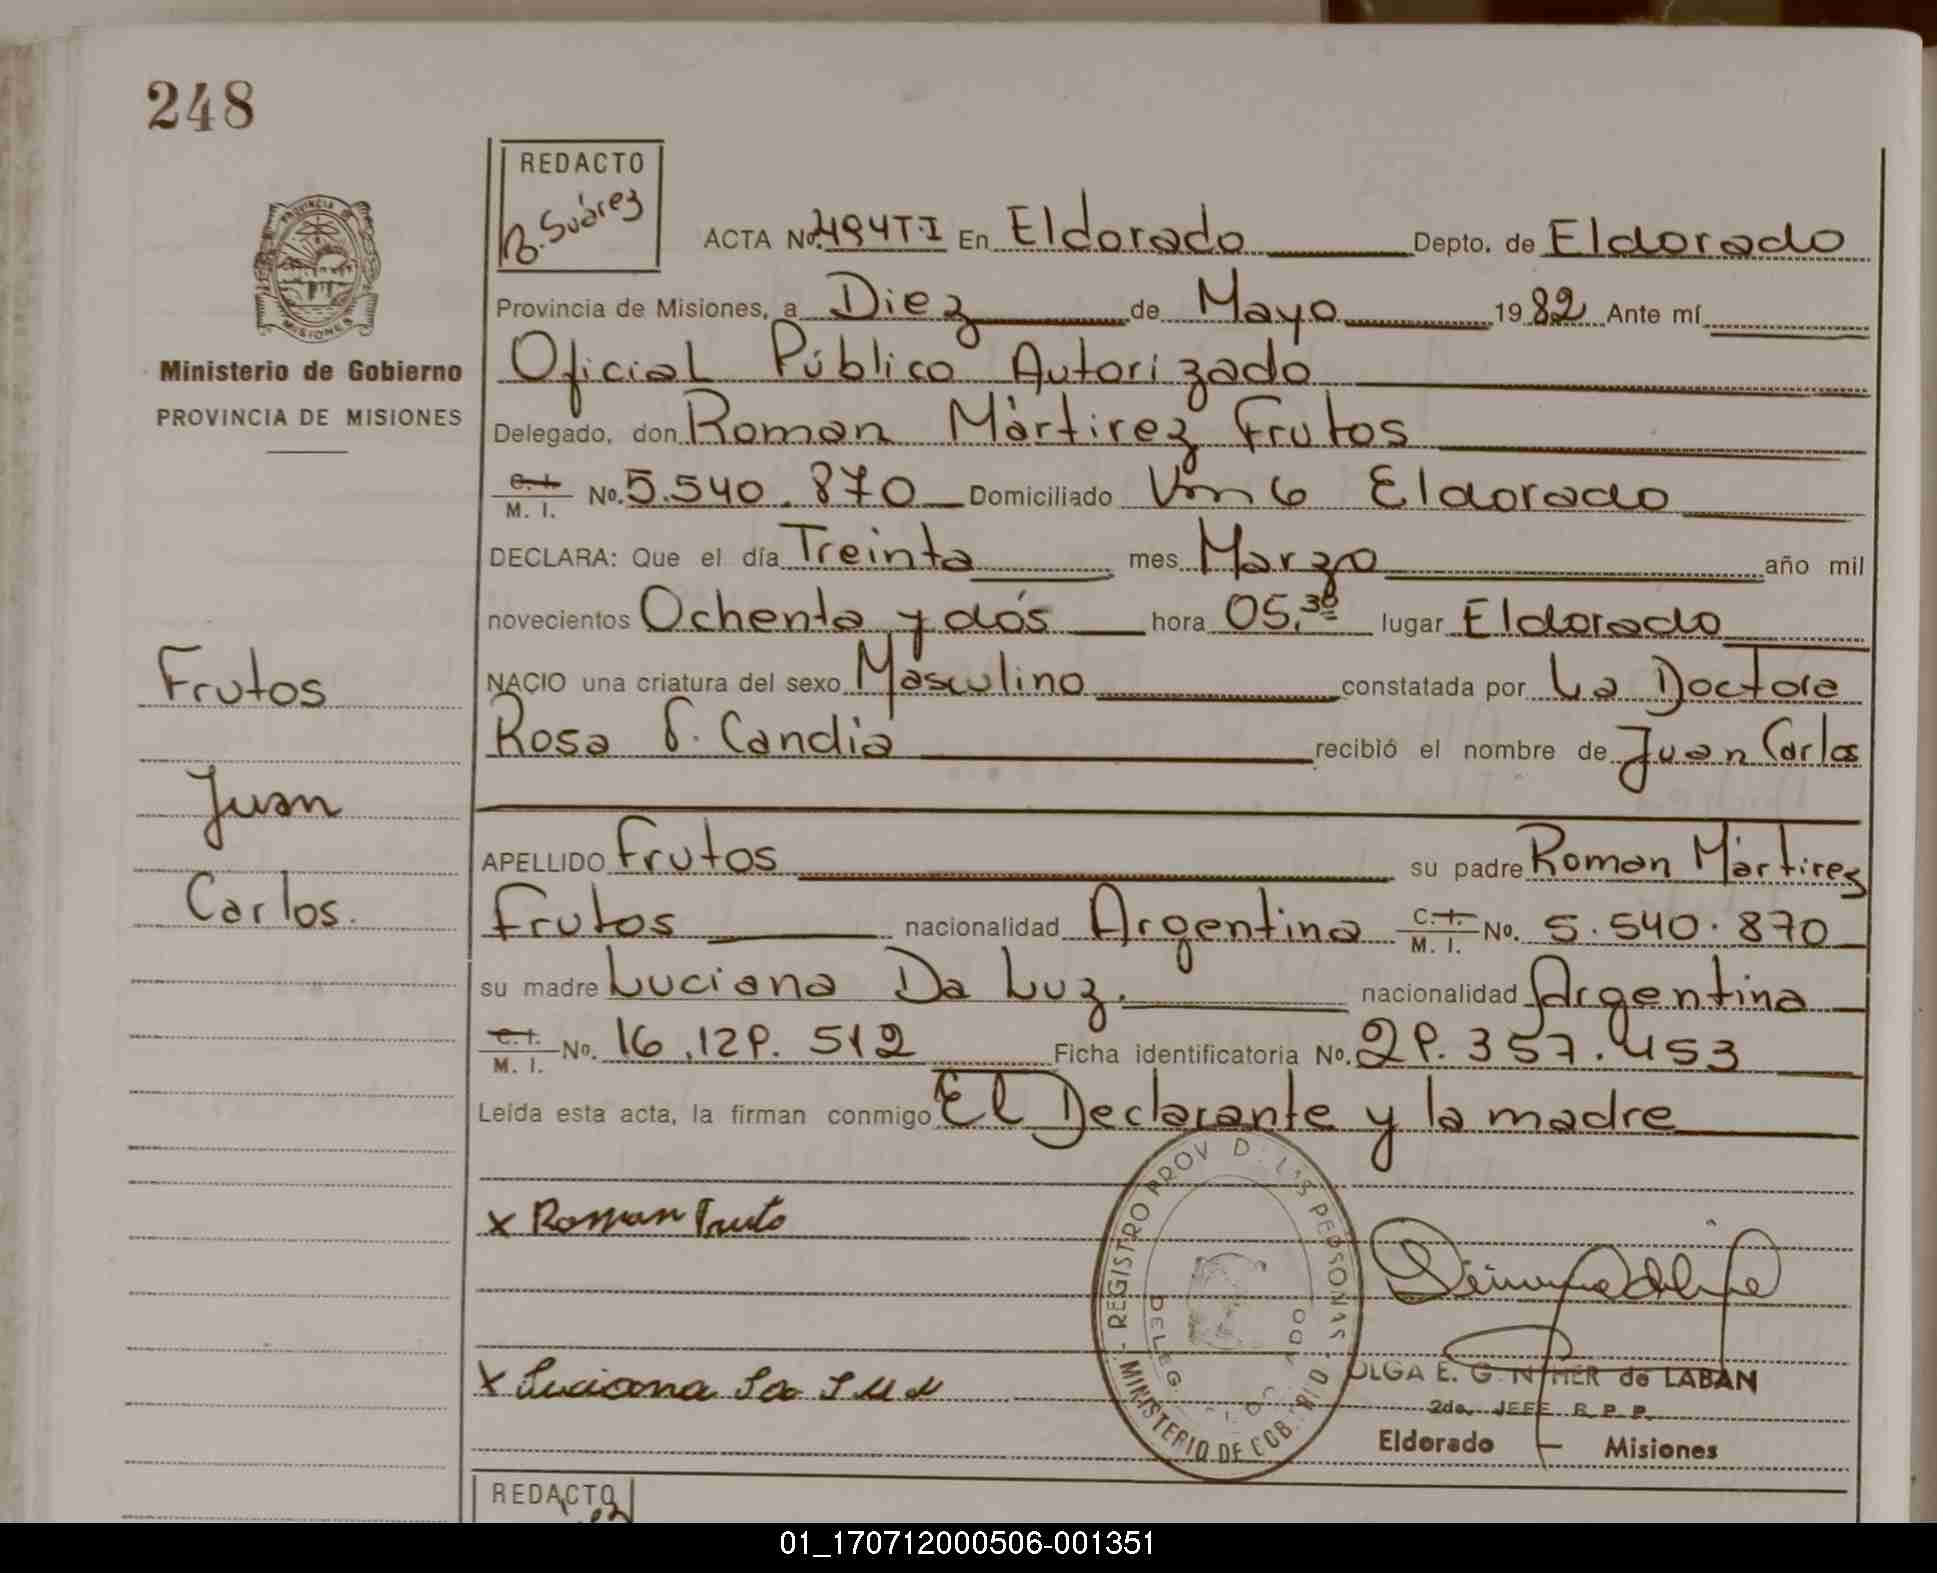 248
REDACTO
B. Suárez
ACTA No. 494 T-I En Eldorado Depto. de Eldorado
Provincia de Misiones, a Diez de Mayo 1982 Ante mí
Oficial Público Autorizado
Delegado, don Roman Mártirez Frutos
C. I.
M. I. No. 5.540.870 Domiciliado Km 6 Eldorado
DECLARA: Que el día Treinta mes Marzo año mil
novecientos Ochenta y dós hora 05,30 lugar Eldorado
NACIO una criatura del sexo Masculino constatada por La Doctora
Rosa S. Candia recibió el nombre de Juan Carlos
APELLIDO Frutos su padre Roman Mártirez
Frutos nacionalidad Argentina C. I. M. I. No. 5.540.870
su madre Luciana Da Luz. nacionalidad Argentina
C. I.
M. I. No. 16.129.512 Ficha identificatoria No. 29.357.453
Leída esta acta, la firman conmigo El Declarante y la madre
x Roman Fruto
x Luciana Da Luz
PROVINCIA DE MISIONES
Ministerio de Gobierno
PROVINCIA DE MISIONES
Frutos
Juan
Carlos.
REGISTRO PROV D. LAS PERSONAS
MINISTERIO DE GOB.
DELEG.
OLGA E. G NTHER de LABAN
2da. JEFE R. P. P.
Eldorado — Misiones
REDACTO
01_170712000506-001351